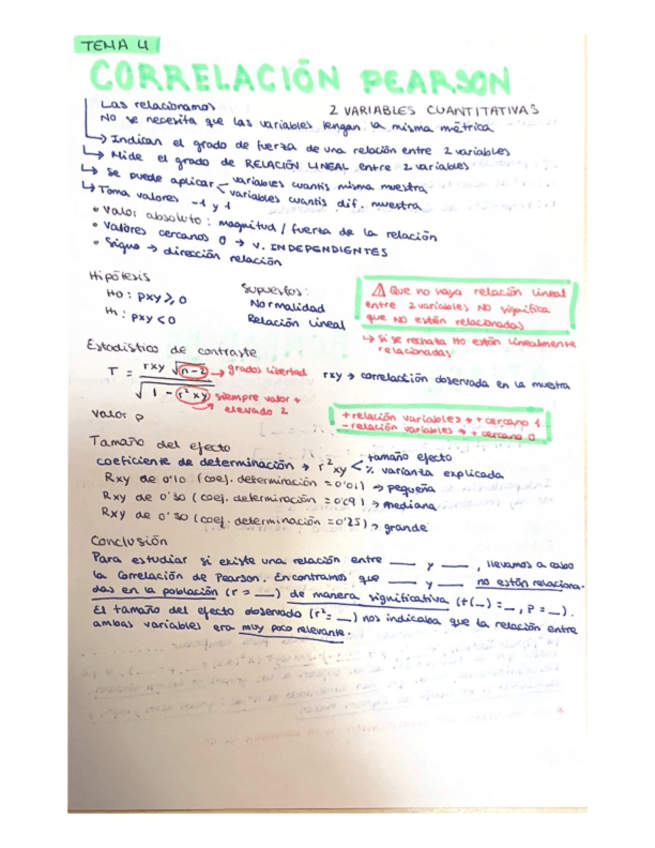 TEMA 4
CORRELACIÓN PEARSON
Las relacionamos 2 VARIABLES CUANTITATIVAS
No se necesita que las variables tengan la misma métrica
↳ Indican el grado de fuerza de una relación entre 2 variables
↳ Mide el grado de RELACIÓN LINEAL entre 2 variables
↳ Se puede aplicar < variables cuantis misma muestra
variables cuantis dif. muestra
↳ Toma valores -1 y 1
• Valor absoluto: magnitud / fuerza de la relación
• Valores cercanos 0 → v. INDEPENDIENTES
• Signo → dirección relación
Hipótesis
H0: pxy ≥ 0
H1: pxy < 0
Supuestos:
Normalidad
Relación Lineal
⚠ Que no haya relación lineal
entre 2 variables NO significa
que NO estén relacionadas
↳ Si se rechaza H0 están linealmente
relacionadas
Estadístico de contraste
T = rxy √n-2 → grados libertad
√1 - r²xy siempre valor +
→ elevado 2
rxy → correlación observada en la muestra
valor p
+ relación variables → + cercano 1
- relación variables → + cercano 0
Tamaño del efecto
coeficiente de determinación → r²xy < tamaño efecto
% varianza explicada
Rxy de 0'10 (coef. determinación = 0'01) → pequeña
Rxy de 0'30 (coef. determinación = 0'09) → mediana
Rxy de 0'50 (coef. determinación = 0'25) → grande
Conclusión
Para estudiar si existe una relación entre ___ y ___, llevamos a cabo
la Correlación de Pearson. Encontramos que ___ y ___ no están relaciona-
das en la población (r = _) de manera significativa (t(_) = _, p = _).
El tamaño del efecto observado (r² = _) nos indicaba que la relación entre
ambas variables era muy poco relevante.